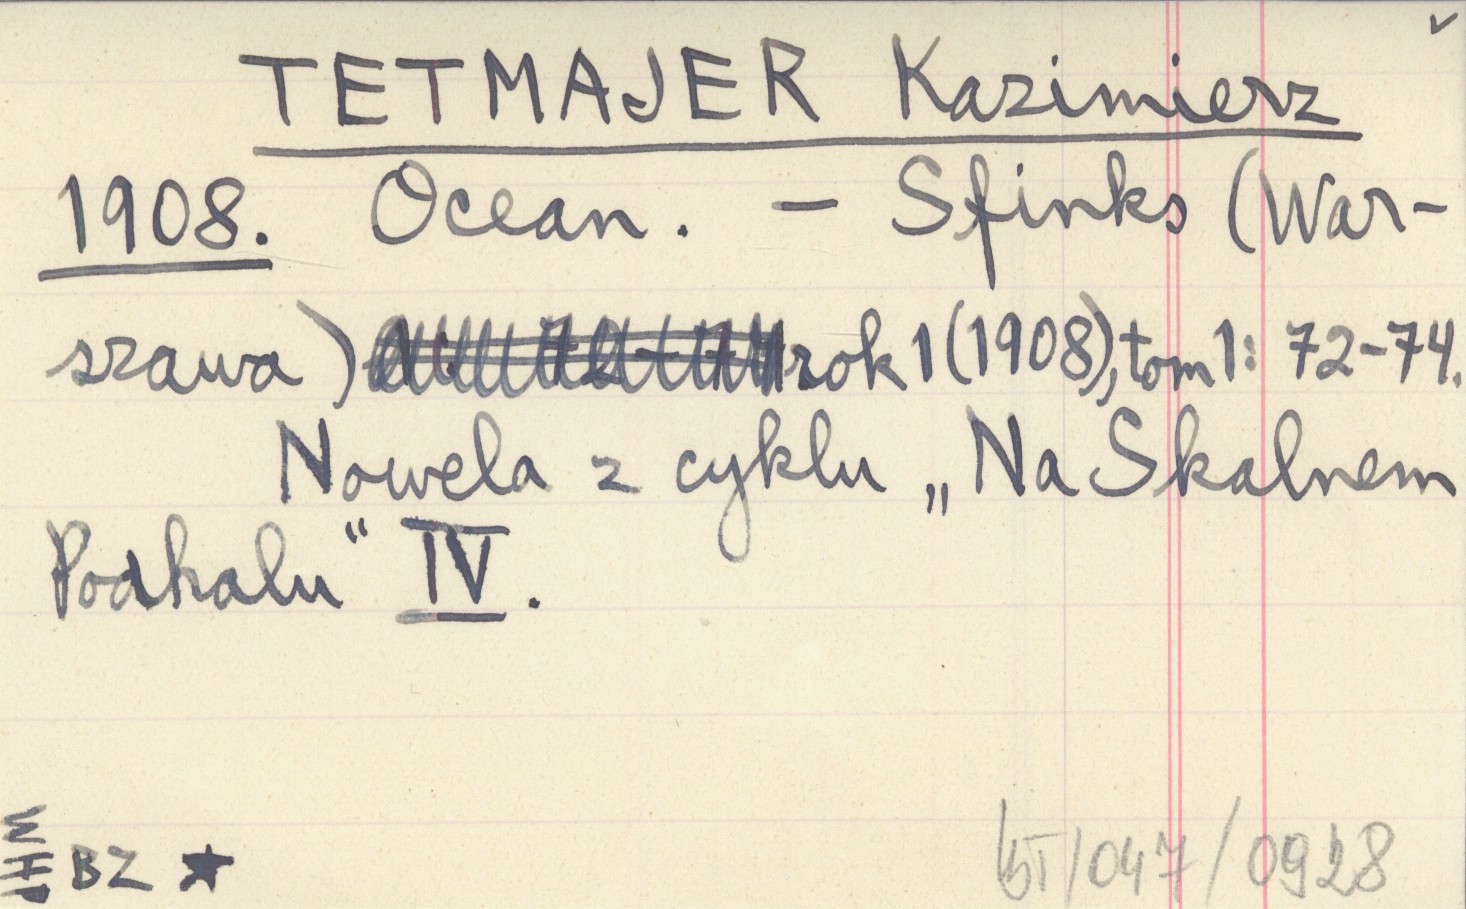 TETMAJER Kazimierz
1908. Ocean. – Sfinks (War-
szawa) rok 1 (1908), tom 1: 72-74.
Nowela z cyklu „Na Skalnem
Podhalu“ IV.
BZ ★
BT/047/0928